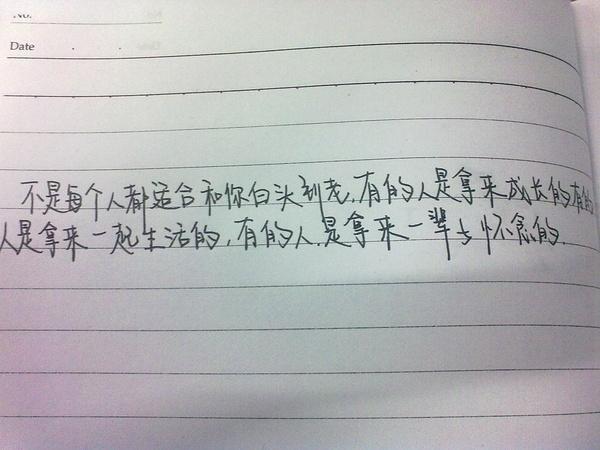 No.
Date
不是每个人都适合和你白头到老,有的人是拿来成长的有的
人是拿来一起生活的,有的人是拿来一辈子怀念的.